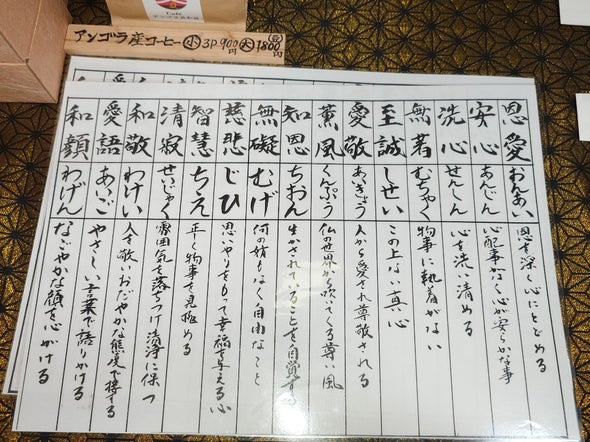 Café
アンゴラ産コーヒー 小 3P 900円 大 豆 1800円
恩愛 おんあい 恩を深く心にとどめる
安心 あんじん 心配事がなく心が安らかな事
洗心 せんしん 心を洗い清める
無着 むちゃく 物事に執着がない
至誠 しせい この上ない真心
愛敬 あいきょう 人から愛され尊敬される
薫風 くんぷう 仏の世界から吹いてくる尊い風
知恩 ちおん 生かされていることを自覚する
無礙 むげ 何の妨もなく自由なこと
慈悲 じひ 思いやりをもって幸福を与える心
智慧 ちえ 正しく物事を見極める
清寂 せいじゃく 雰囲気を落ちつけ清浄に保つ
和敬 わけい 人を敬いおだやかな態度で接する
愛語 あいご やさしい言葉で語りかける
和顔 わげん なごやかな顔を心がける